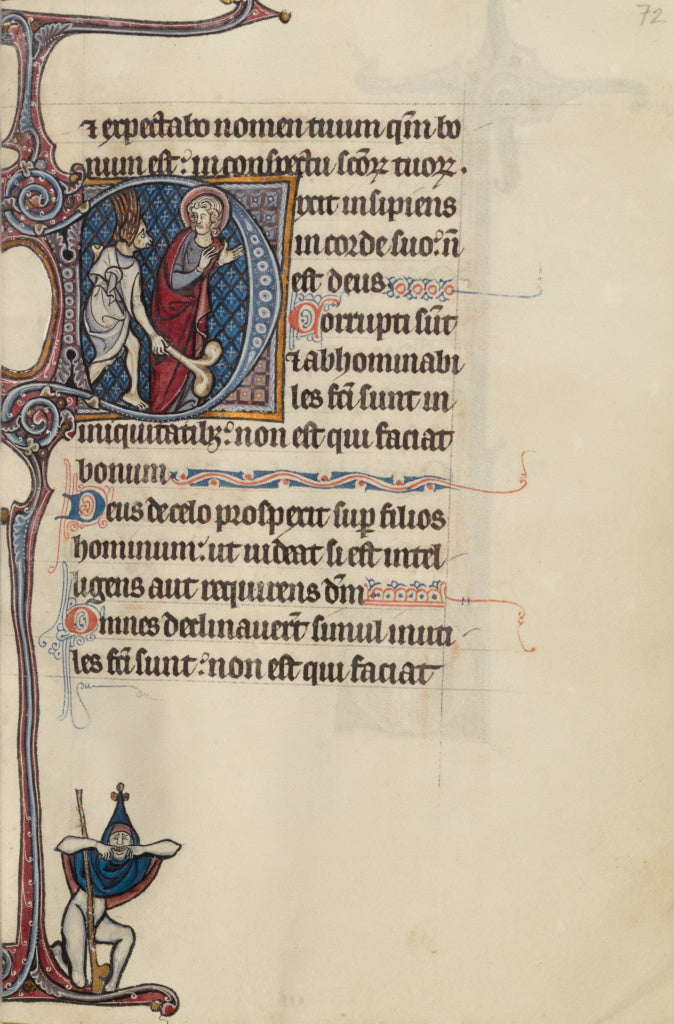 72
⁊ expectabo nomen tuum qm̄ bo
num est: in conspectu scōꝝ tuoꝝ.
Dixit insipiens
in corde suo: n̄
est deus
Corrupti sūt
⁊ abhominabi
les fcī sunt in
iniquitatibꝫ: non est qui faciat
bonum
Deus de celo prospexit sup̄ filios
hominum: ut uideat si est intel
ligens aut requirens dm̄
Omnes declinauerūt simul inuti
les fcī sunt: non est qui faciat